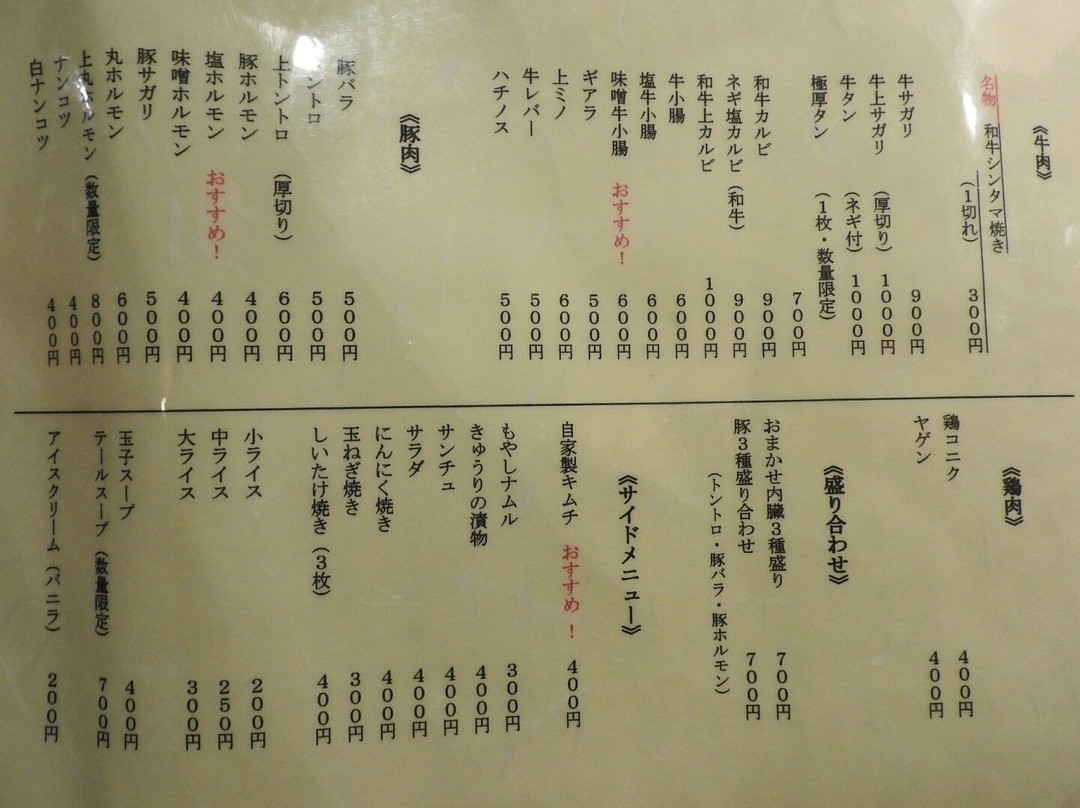 《牛肉》
名物 和牛シンタマ焼き
(1切れ) 300円
牛サガリ 900円
牛上サガリ (厚切り) 1000円
牛タン (ネギ付) 1000円
極厚タン (1枚・数量限定) 700円
和牛カルビ 900円
ネギ塩カルビ (和牛) 900円
和牛上カルビ 1000円
牛小腸 600円
塩牛小腸 600円
味噌牛小腸 おすすめ! 600円
ギアラ 500円
上ミノ 600円
牛レバー 500円
ハチノス 500円
《豚肉》
豚バラ 500円
ントロ 500円
上トントロ (厚切り) 600円
豚ホルモン 400円
塩ホルモン おすすめ! 400円
味噌ホルモン 400円
豚サガリ 500円
丸ホルモン 600円
上丸ホルモン (数量限定) 800円
ナンコツ 400円
白ナンコツ 400円
《鶏肉》
鶏コニク 400円
ヤゲン 400円
《盛り合わせ》
おまかせ内臓3種盛り 700円
豚3種盛り合わせ 700円
(トントロ・豚バラ・豚ホルモン)
《サイドメニュー》
自家製キムチ おすすめ! 400円
もやしナムル 300円
きゅうりの漬物 400円
サンチュ 400円
サラダ 400円
にんにく焼き 400円
玉ねぎ焼き 300円
しいたけ焼き (3枚) 400円
小ライス 200円
中ライス 250円
大ライス 300円
玉子スープ 400円
テールスープ (数量限定) 700円
アイスクリーム (バニラ) 200円